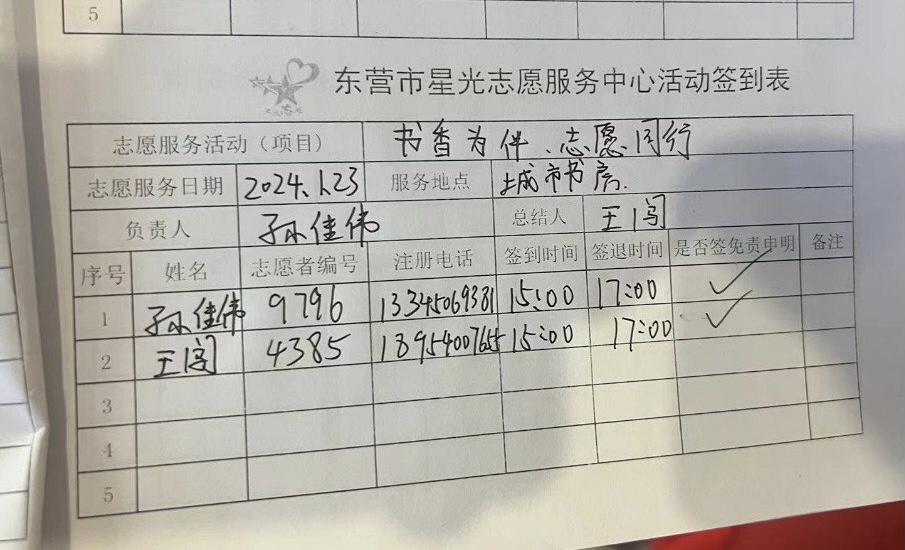 5
东营市星光志愿服务中心活动签到表
志愿服务活动（项目） 书香为伴、志愿同行
志愿服务日期 2024.1.23 服务地点 城市书房.
负责人 孙佳伟 总结人 王闯
序号 姓名 志愿者编号 注册电话 签到时间 签退时间 是否签免责申明 备注
1 孙佳伟 9796 13345069381 15:00 17:00 ✓
2 王闯 4385 18954007655 15:00 17:00 ✓
3
4
5